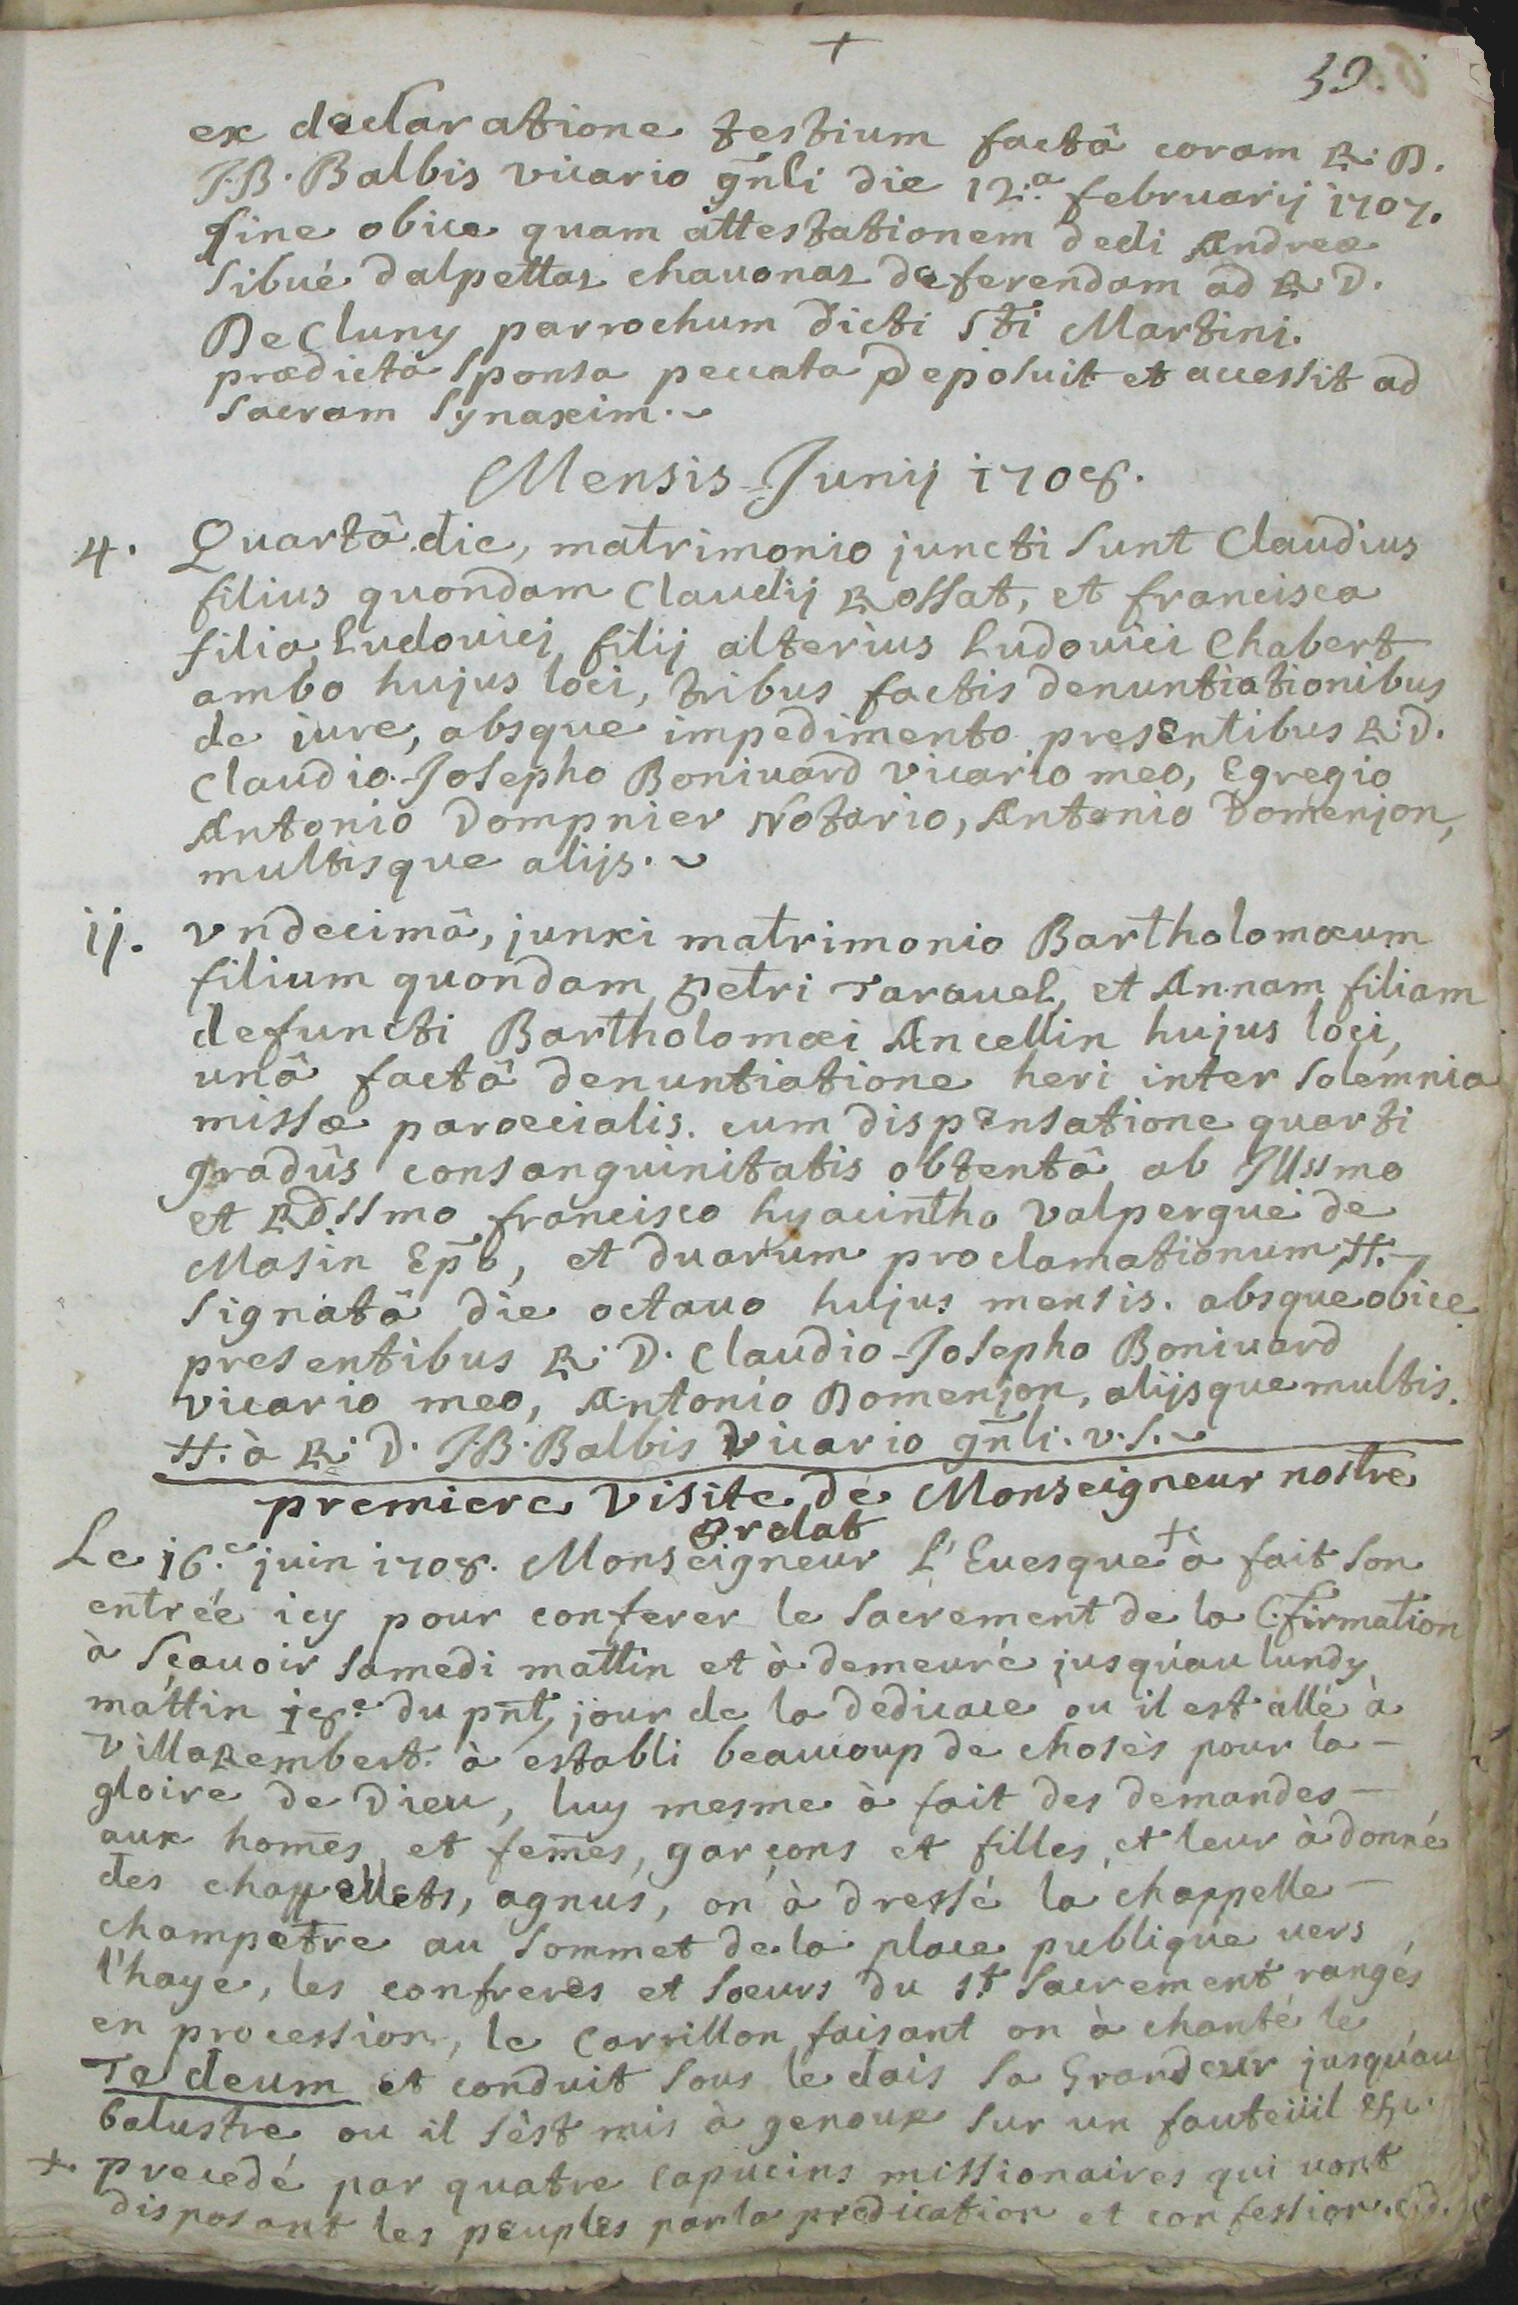 +
39.
ex declaratione testium factâ coram R. D.
J.B. Balbis vicario gñli die 12.a februarij 1707.
sine obice quam attestationem dedi Andreæ
Sibué dalpettaz chavonaz deferendam ad R. D.
De Cluny parrochum dicti Sti Martini.
prædicta Sponsa peccata deposuit et accessit ad
Sacram Synaxim.
Mensis Junij 1708.
4. Quartâ die, matrimonio juncti sunt Claudius
filius quondam Claudij Rossat, et francisca
filia Ludovici filij alterius Ludovici Chabert
ambo hujus loci, tribus factis denuntiationibus
de jure, absque impedimento presentibus R. D.
Claudio-Josepho Bonivard vicario meo, Egregio
Antonio Dompnier Notario, Antonio Domenjon,
multisque alijs.
11. Undecimâ, junxi matrimonio Bartholomæum
filium quondam petri Taravel, et Annam filiam
defuncti Bartholomæi Ancellin hujus loci,
unâ factâ denuntiatione heri inter Solemnia
missæ parœcialis. cum dispensatione quarti
gradûs consanguinitatis obtentâ ab Illssmo
et Rdssmo francisco hyacintho valpergue de
Masin Epõ, et duarum proclamationum #.
Signatâ die octavo hujus mensis. absque obice
presentibus R. D. Claudio-Josepho Bonivard
vicario meo, Antonio Domenjon, alijsque multis.
#. à R. D. J.B. Balbis vicario gñli. v.s.
premiere visite de Monseigneur nostre
Prelat
Le 16.e juin 1708. Monseigneur L'Evesque + à fait son
entrée icy pour conferer le Sacrement de la C.firmation
à Sçavoir Samedi mattin et à demeuré jusqu'au lundy
mattin 18.e du pñt, jour de la dedicace ou il est allé à
VillaRembert. à establi beaucoup de choses pour la
gloire de Dieu, luy mesme à fait des demandes
aux hom̄es et fem̄es, garçons et filles, et leur à donné
des chappellets, agnus, on à dressé la chappelle
champetre au Sommet de la place publique vers
l'haye, les confreres et Soeurs du St Sacrement rangés
en procession, le Carrillon faisant on à chanté le
Te deum et conduit Sous le dais Sa Grandeur jusqu'au
balustre ou il s'est mis à genoux Sur un fauteüil &c.
+. precedé par quatre capucins missionaires qui vont
disposant les peuples par la predication et confession.